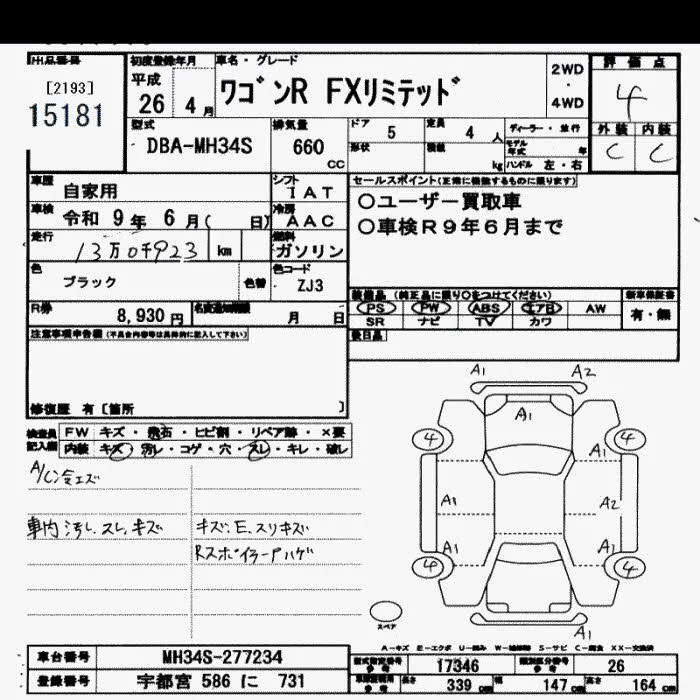 出品番号
[2193]
15181
初度登録年月
平成
26 4月
車名・グレード
ワゴンR FXリミテッド
2WD
・
4WD
評価点
4
外装 内装
C C
型式
DBA-MH34S
排気量
660
CC
ドア 5
形状
定員 4 人
積載 kg
ディーラー・並行
モデル年式 年
ハンドル 左・右
車歴 自家用
シフト
IAT
車検 令和 9年 6月( 日)
冷房
AAC
走行 13万0千923 km
燃料
ガソリン
色 ブラック
色替
色コード
ZJ3
R券 8,930円
名義変更期限 月 日
セールスポイント(正常に機能するものに限ります)
○ユーザー買取車
○車検R9年6月まで
装備品 (純正品に限り○をつけてください)
PS PW ABS エアB AW
SR ナビ TV カワ
新車保証書
有・無
後日品
注意事項申告欄(不具合内容等は具体的に記入して下さい)
修復歴 有〔箇所 〕
検査員記入欄
FW キズ・飛石・ヒビ割・リペア跡・×要
内装 キズ・汚レ・コゲ・穴・スレ・キレ・破レ
A/C冷エズ
車内汚レ、スレ、キズ
キズ、E、スリキズ
Rスポイラーアハゲ
A1 A2
A1
4 4
A1 A2
A1 A1
4 4
A1
スペア
A－キズ E－エクボ U－凹み W－補修跡 S－サビ C－腐食 XX－交換済
車台番号 MH34S-277234
登録番号 宇都宮 586 に 731
型式指定番号 参考 17346
類別区分番号 参考 26
参考 長さ 339 cm 幅 147 cm 高さ 164 cm